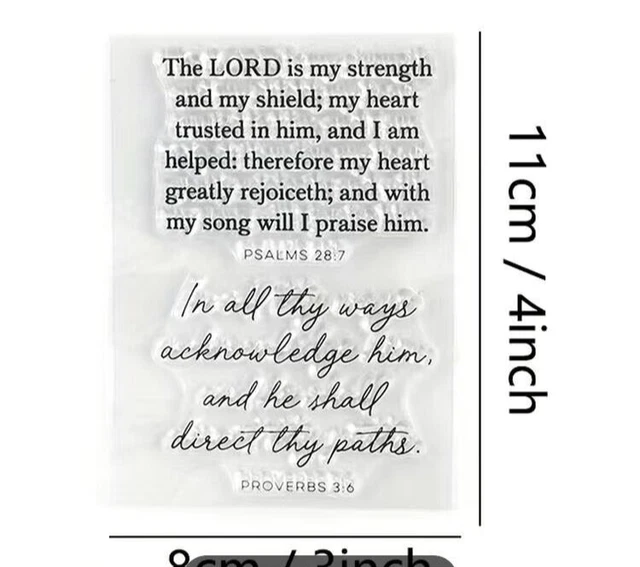 The LORD is my strength
and my shield; my heart
trusted in him, and I am
helped: therefore my heart
greatly rejoiceth; and with
my song will I praise him.
PSALMS 28:7
In all thy ways
acknowledge him,
and he shall
direct thy paths.
PROVERBS 3:6
11cm / 4inch
8cm / 3inch